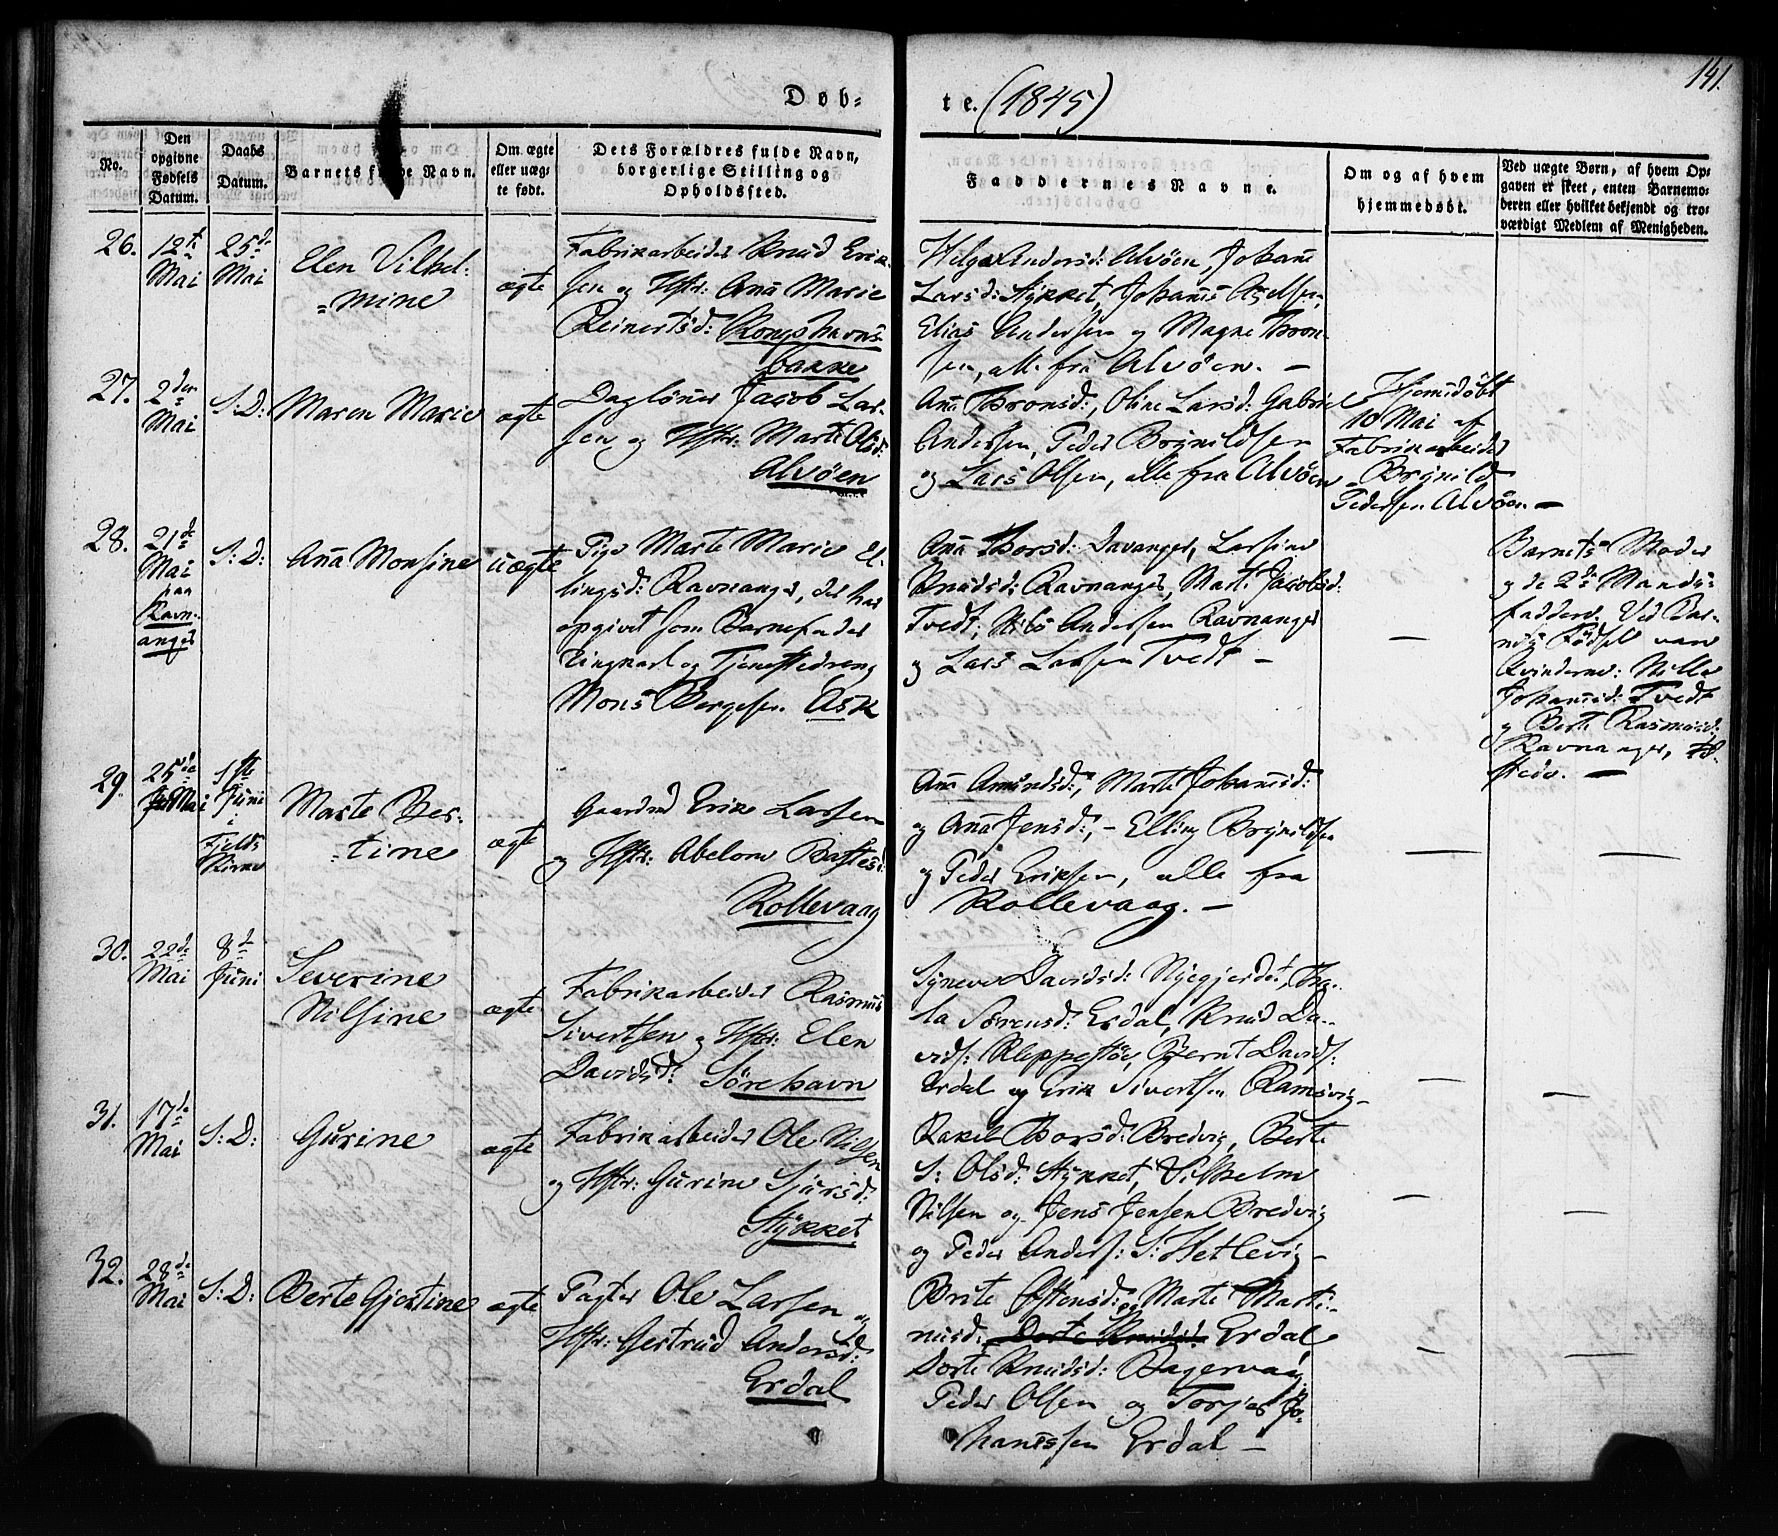 141.
Døb-
te. (1845)
No.
Den
opgivne
Fødsels
Datum.
Daabs
Datum.
Barnets fulde Navn.
Om ægte
eller uæg-
te født.
Dets Forældres fulde Navn,
borgerlige Stilling og
Opholdssted.
Faddernes Navne.
Om og af hvem
hjemmedøbt.
Ved uægte Børn, af hvem Op-
gaven er skeet, enten Barnemo-
deren eller hvilket bekjendt og tro-
værdigt Medlem af Menigheden.
26.
12te
Mai
25de
Mai
Elen Vilhel-
=mine
ægte
Fabrikarbeider Knud Erik-
sen og Hstr: Ana Marie
Reinertsd: Kongshavns-
bakke
Helga Andersd: Alvöen, Johane
Larsd: Stykket, Johanes
Elias Andersen og Magne Thron-
sen, alle fra Alvöen. —
27.
2den
Mai
S: D:
Maren Marie
ægte
Daglöner Jacob Lar-
sen og Hstr: Marte Olsd:
Alvöen
Ana Thronsd:, Oline Larsd: Gabriel
Andersen, Peder Brynildsen
og Lars Olsen, alle fra Alvöen
Hjemedöbt
10 Mai af
Fabrikarbeider
Brynild
Pedersen Alvöen —
28.
21de
Mai
paa
Ravn-
anger
S: D:
Ana Monsine
uægte
Pige Marte Marie El-
lingsd: Ravnanger, der har
opgivet som Barnefader
Ungkarl og Tjenestedreng
Mons Børgesen Ask
Ana Thorsd: Davanger, Larsine
Knudsd: Ravnanger, Marte Jacobsd:
Tvedt, Nils Andersen Ravnanger
og Lars Larsen Tvedt —
—
Barnets Moder
og de 2de Mands-
faddere. Ved Bar-
nets Födsel vare
Kvinderne: Nille
Johanesd: Tvedt
og Berte Rasmusd:
Ravnanger, til
stede. —
29.
25de
Mai
1ste
Juni
i
Fjelds
Kirke
Marte Ber-
=tine
ægte
Gaardmd Erik Larsen
og Hstr: Abelone Bastesd:
Rollevaag
Ana Amundsd:, Marte Johanesd:
og Ana Jensd:, – Elling Brynildsen
og Peder Eriksen, alle fra
Rollevaag. —
—
—
30.
22de
Mai
8de
Juni
Severine
Nilsine
ægte
Fabrikarbeider Rasmus
Sivertsen og Hstr: Elen
Davidsd: Sörehavn
Synneve Davidsd: Nyegjerdet,
Sörensd: Erdal, Knud Da-
vids: Kleppestöe, Bernt Davids:
Erdal og Erik Sivertsen Ramsvig—
—
—
31.
17de
Mai
S: D:
Gurine
ægte
Fabrikarbeider Ole Nilsen
og Hstr: Gurine Sjursd:
Stykket
Rakel Thorsd: Bredvig, Berte
S: Olsd: Stykket, Vilhelm
Nilsen og Jens Jensen Bredvig
og Peder Anders: S: Hetlevig—
—
—
32.
28de
Mai
S: D:
Berte Gjertine
ægte
Pagter Ole Larsen og
Hstr: Gertrud Andersd:
Erdal
Brite Östensd: og Marte Marti-
nusd: Dorte Knudsd: Erdal
Dorte Knudsd: Bagervaag
Peder Olsen og Torjer Jo-
hannessen Erdal —
—
—